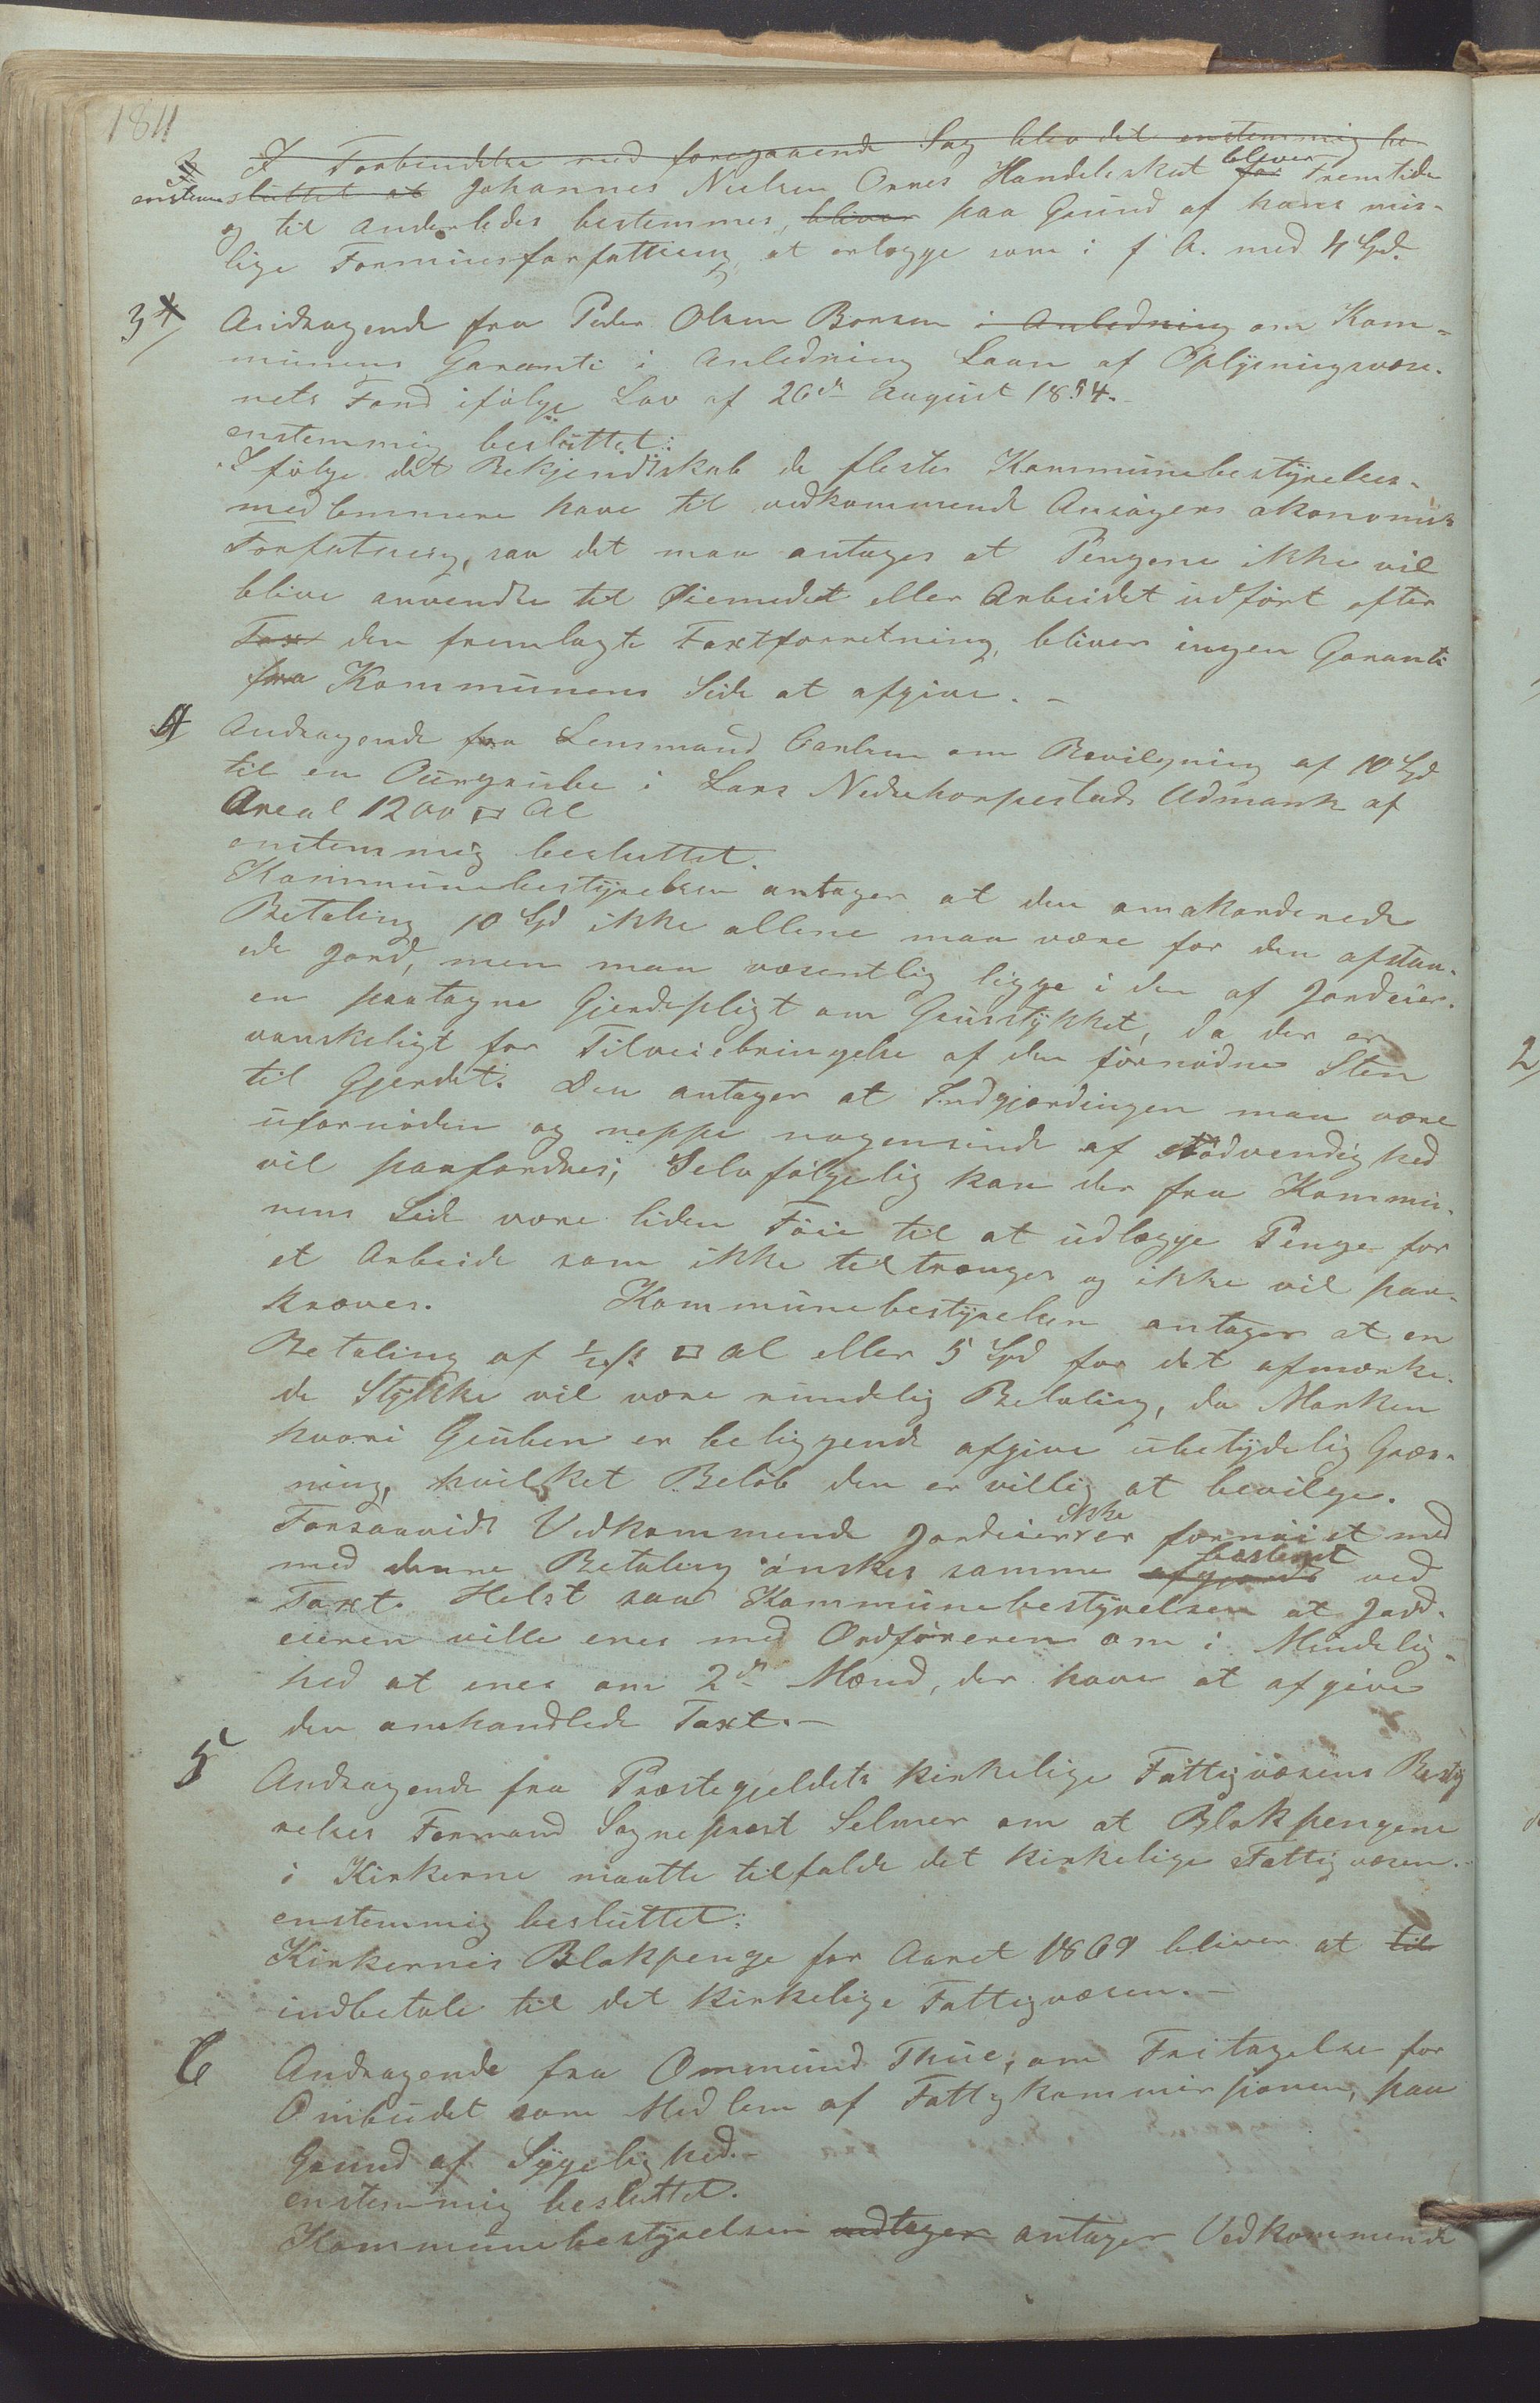 184
I Forbindelse med foregaaende Sag blev det enstemmig be
2/ enstem sluttet at Johannes Nielsen Orres Handelsskat bliver for Fremtiden
og til anderledes bestemmes, bliver paa Grund af hans mis-
lige Formuesforfatning at erlægge som i f A. med 4 Spd.
3/ Andragende fra Peder Olsen Borsen i Anledning om Kom-
munens Garanti i Anledning Laan af Oplysningsvæse-
nets Fond ifølge Lov af 26de August 1854.-
enstemmig besluttet:
I følge det Bekjendtskab de fleste Kommunebestyrelses-
medlemmere have til vedkommende Ansøgers økonomiske
Forfatning, saa det maa antages at Pengene ikke vil
blive anvendte til Øiemedet eller Arbeidet udført efter
Taxt den fremlagte Taxtforretning, bliver ingen Garanti
fra Kommunens Side at afgive. -
4 Andragende fra Lensmand Carlsen om Bevilgning af 10 Spd
til en Gruusgrube i Lars Nedrehorpestads Udmark af
Areal 1200 □ Al
enstemmig besluttet.
Kommunebestyrelsen antager at den omakorderede
Betaling 10 Spd ikke allene maa være for den afstaa-
ede Jord, men maa væsentlig ligge i den af Jordeier-
en paatagne Gjerdepligt om Gruusstykket, da der er
vanskeligt for Tilveiebringelse af den fornødne Sten
til Gjerdet. Den antager at Indgjærdingen maa være
ufornøden og neppe nogensinde af Nødvendighed
vil paafordres; Selvfølgelig kan der fra Kommu-
nens Side være liden Føie til at udlægge Penge for
et Arbeide som ikke tiltrænges og ikke vil paa-
kræves. Kommunebestyrelsen antager at en
Betaling af ½ ß □ Al eller 5 Spd for det afmærke-
de Stykke vil være rundelig Betaling, da Marken
hvori Gruben er beliggende afgive ubetydelig Græs-
ning, hvilket Beløb den er villig at bevilge.
Forsaavidt Vedkommende Jordeier er ikke fornøiet med
med denne Betaling ønskes samme afgjordt bestemt ved
Taxt. Helst saa Kommunebestyrelsen at Jord-
eieren ville enes med Ordføreren om i Mindelig-
hed at enes om 2de Mænd, der have at afgive
den omhandlede Taxt.-
5 Andragende fra Præstegjeldets kirkelige Fattigvæsens Besty
relses Formand Sognepræst Selmer om at Blokpengene
i Kirkerne maatte tilfalde det kirkelige Fattigvæsen.
enstemmig besluttet:
Kirkernes Blokpenge for Aaret 1869 bliver at til
indbetale til det kirkelige Fattigvæsen.-
6 Andragende fra Ommund Thue, om Fritagelse for
Ombudet som Medlem af Fattigkommissionen, paa
Grund af Sygelighed.-
enstemmig besluttet.
Kommunebestyrelsen andtager antager Vedkommende
2/